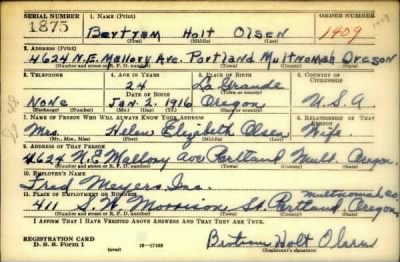 SERIAL NUMBER 1. NAME (Print) ORDER NUMBER
1875 Bertram Holt Olsen 1409
(First) (Middle) (Last)
2. ADDRESS (Print)
4624 N.E. Mallory Ave. Portland Multnomah Oregon
(Number and street or R. F. D. number) (Town) (County) (State)
3. TELEPHONE 4. AGE IN YEARS 5. PLACE OF BIRTH 6. COUNTRY OF CITIZENSHIP
24 La Grande
DATE OF BIRTH (Town or county)
None Jan. 2. 1916 Oregon U.S.A
(Exchange) (Number) (Mo.) (Day) (Yr.) (State or country)
7. NAME OF PERSON WHO WILL ALWAYS KNOW YOUR ADDRESS 8. RELATIONSHIP OF THAT PERSON
Mrs. Helen Elizabeth Olsen Wife
(Mr., Mrs., Miss) (First) (Middle) (Last)
9. ADDRESS OF THAT PERSON
4624 N.E Mallory Ave Portland Mult. Oregon
(Number and street or R. F. D. number) (Town) (County) (State)
10. EMPLOYER'S NAME
Fred Meyers, Inc.
11. PLACE OF EMPLOYMENT OR BUSINESS Multnomah Co.
411 S.W. Morrison St. Portland, Oregon
(Number and street or R. F. D. number) (Town) (County) (State)
I AFFIRM THAT I HAVE VERIFIED ABOVE ANSWERS AND THAT THEY ARE TRUE.
REGISTRATION CARD
D. S. S. Form 1 (over) 16-17105 Bertram Holt Olsen
(Registrant's signature)